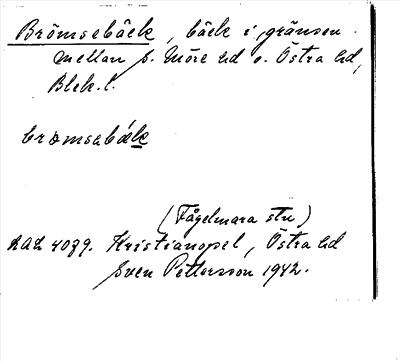 Brömsebäck, bäck i gränsen
mellan s. Möre hd o. Östra hd,
Blek. l.
brömsabäk
(Fågelmara stn)
AAL 4079. Kristianopel, Östra hd
Sven Pettersson 1942.